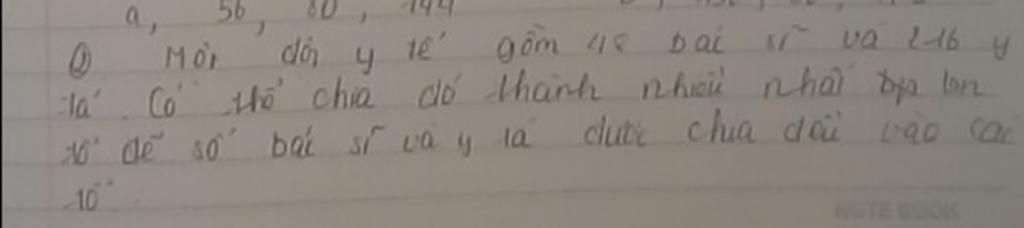 a, 56, 80, 144
Một đội y tế gồm 48 bác sĩ và 216 y
tá. Có thể chia đó thành nhiều nhất
tổ để số bác sĩ và y tá được chia đều vào các
tổ
NOTE BOOK